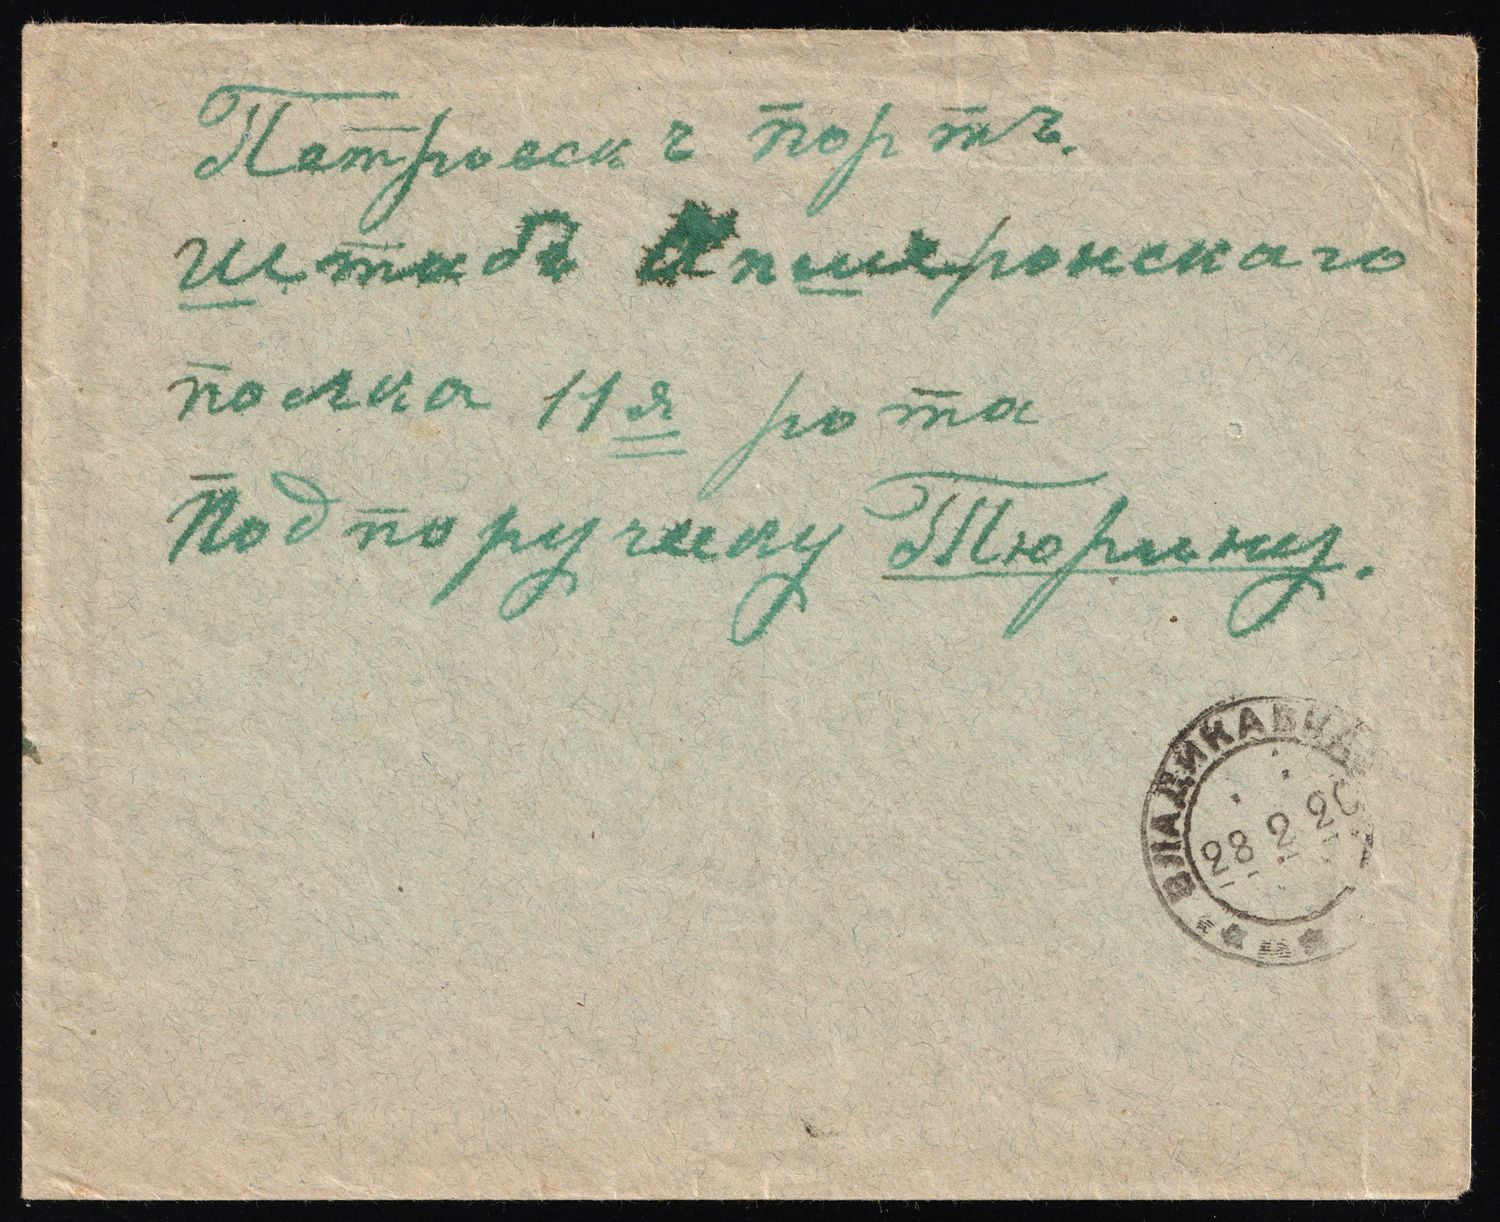 Петровскъ портъ.
Штабъ Апшеронскаго
полка 11я рота
Подпоручику Тюрину.
ВЛАДИКАВКАЗ
28 2 20